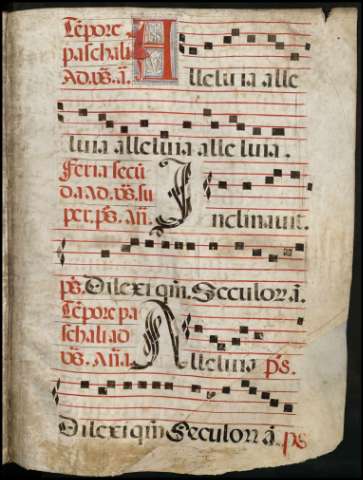 Tēpore
paschali
Ad. vs̄. ā. Alleluia alle
luia alleluia alleluia.
Feria secū
da ad. vs̄. su
per. ps̄. añ. Inclinavit.
ps̄. Dilexi qm̄. Seculorz. ā.
Tēpore pa
schali ad
vs̄. Aña. Alleluia ps̄.
Dilexi qm̄ Seculorz ā. ps̄